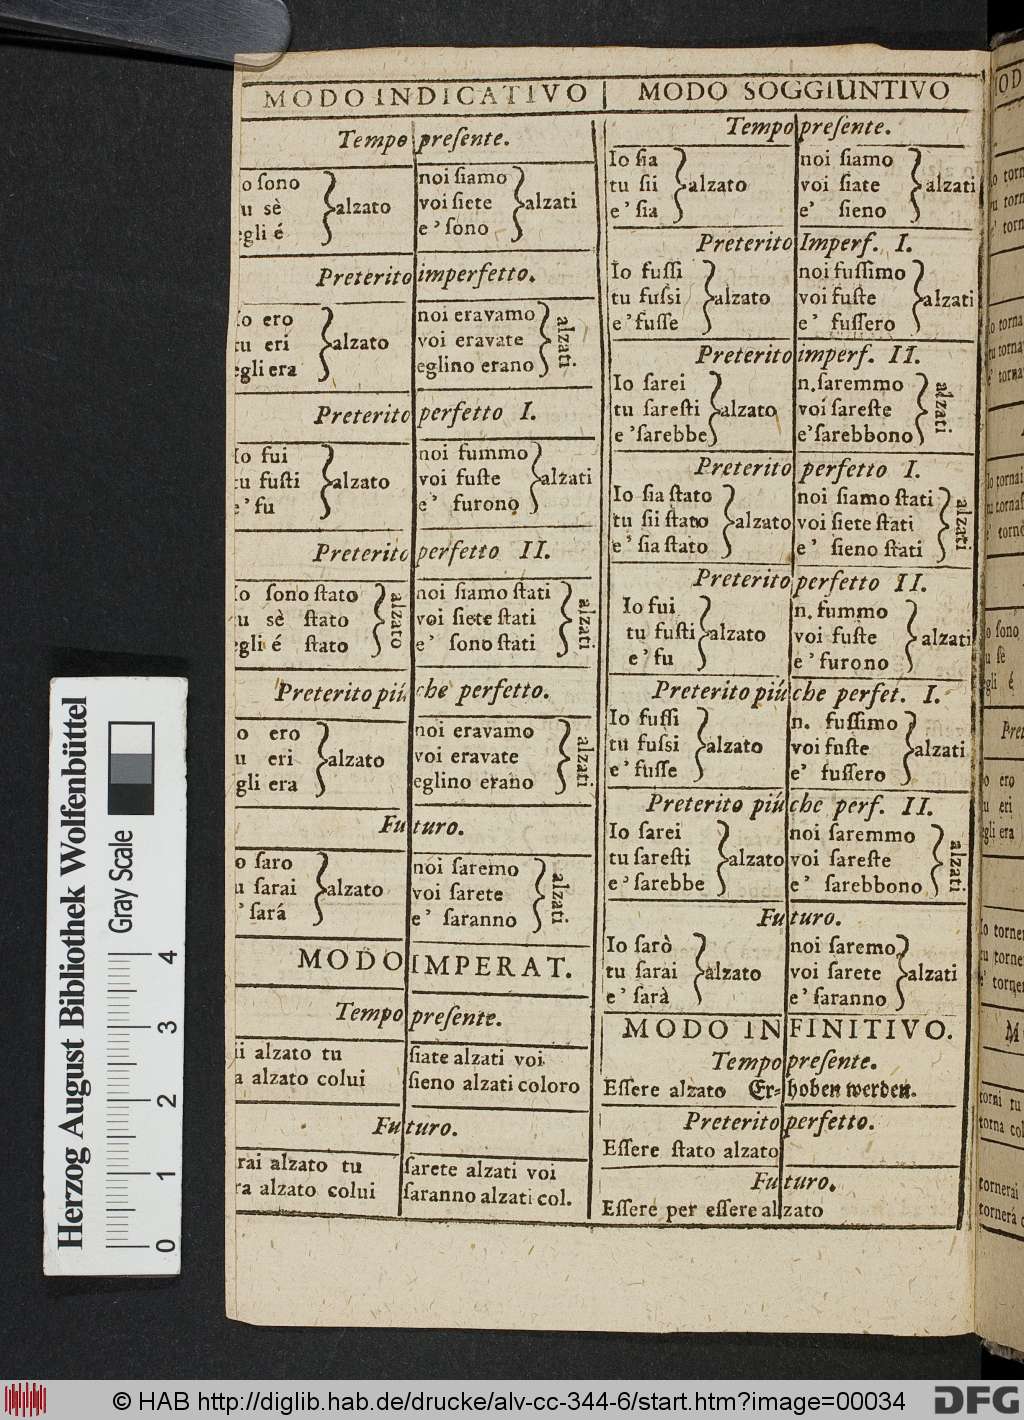 MODO INDICATIVO
Tempo presente.
o sono
u sè
egli é
alzato
noi siamo
voi siete
e' sono
alzati
Preterito imperfetto.
Io ero
tu eri
egli era
alzato
noi eravamo
voi eravate
eglino erano
alzati
Preterito perfetto I.
Io fui
tu fusti
e' fu
alzato
noi fummo
voi fuste
e' furono
alzati
Preterito perfetto II.
Io sono stato
u sè stato
egli é stato
alzato
noi siamo stati
voi siete stati
e' sono stati
alzati
Preterito piú che perfetto.
o ero
u eri
gli era
alzato
noi eravamo
voi eravate
eglino erano
alzati
Futuro.
o saro
u sarai
' sará
alzato
noi saremo
voi sarete
e' saranno
alzati
MODO IMPERAT.
Tempo presente.
ii alzato tu
a alzato colui
siate alzati voi
sieno alzati coloro
Futuro.
rai alzato tu
ra alzato colui
sarete alzati voi
saranno alzati col.
MODO SOGGIUNTIVO
Tempo presente.
Io sia
tu sii
e' sia
alzato
noi siamo
voi siate
e' sieno
alzati
Preterito Imperf. I.
Io fussi
tu fussi
e' fusse
alzato
noi fussimo
voi fuste
e' fussero
alzati
Preterito imperf. II.
Io sarei
tu saresti
e' sarebbe
alzato
n. saremmo
voi sareste
e' sarebbono
alzati
Preterito perfetto I.
Io sia stato
tu sii stato
e' sia stato
alzato
noi siamo stati
voi siete stati
e' sieno stati
alzati
Preterito perfetto II.
Io fui
tu fusti
e' fu
alzato
n. fummo
voi fuste
e' furono
alzati
Preterito piú che perfet. I.
Io fussi
tu fussi
e' fusse
alzato
n. fussimo
voi fuste
e' fussero
alzati
Preterito piú che perf. II.
Io sarei
tu saresti
e' sarebbe
alzato
noi saremmo
voi sareste
e' sarebbono
alzati
Futuro.
Io sarò
tu sarai
e' sarà
alzato
noi saremo
voi sarete
e' saranno
alzati
MODO INFINITIVO.
Tempo presente.
Essere alzato Erhoben werden.
Preterito perfetto.
Essere stato alzato
Futuro.
Essere per essere alzato
Herzog August Bibliothek Wolfenbüttel
Gray Scale
0 1 2 3 4
© HAB http://diglib.hab.de/drucke/alv-cc-344-6/start.htm?image=00034
DFG